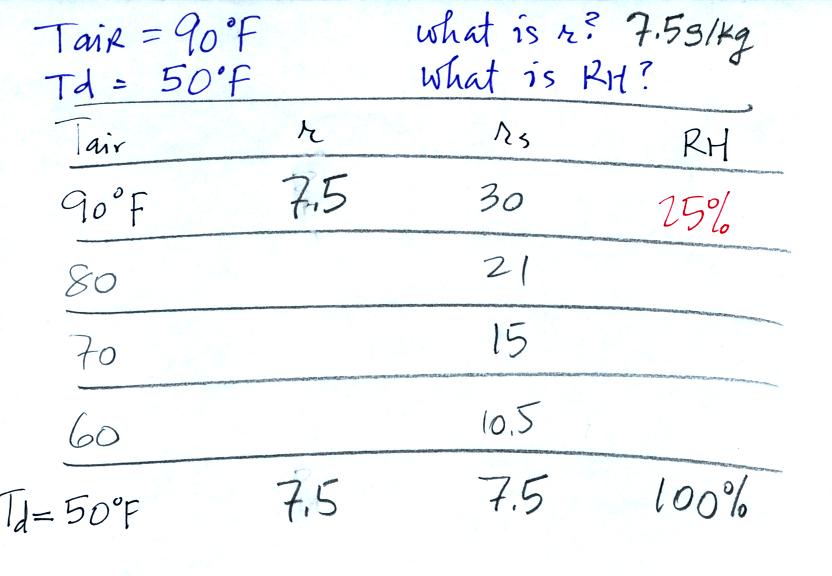 Tair = 90°F what is r? 7.5g/kg
Td = 50°F what is RH?
Tair r rs RH
90°F 7.5 30 25%
80 21
70 15
60 10.5
Td = 50°F 7.5 7.5 100%